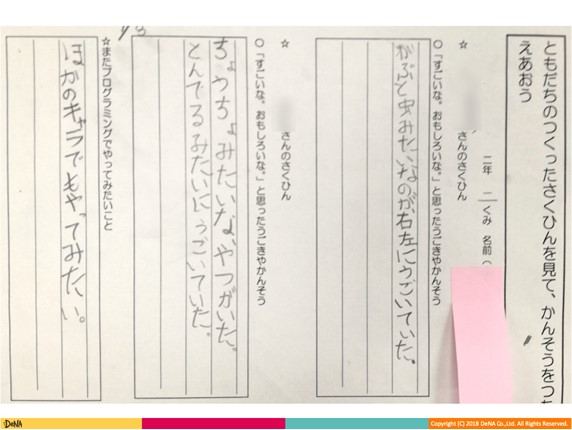 ともだちのつくったさくひんを見て、かんそうをつた
えあおう
二年 二くみ 名前(
☆ さんのさくひん
○「すごいな。おもしろいな。」と思ったうごきやかんそう
かぶと虫みたいなのが右左にうごいていた。
☆ さんのさくひん
○「すごいな。おもしろいな。」と思ったうごきやかんそう
ちょうちょみたいなやつがいた。
とんでるみたいにうごいていた。
☆またプログラミングでやってみたいこと
ほかのキャラでもやってみたい。
DeNA
Copyright (C) 2018 DeNA Co.,Ltd. All Rights Reserved.